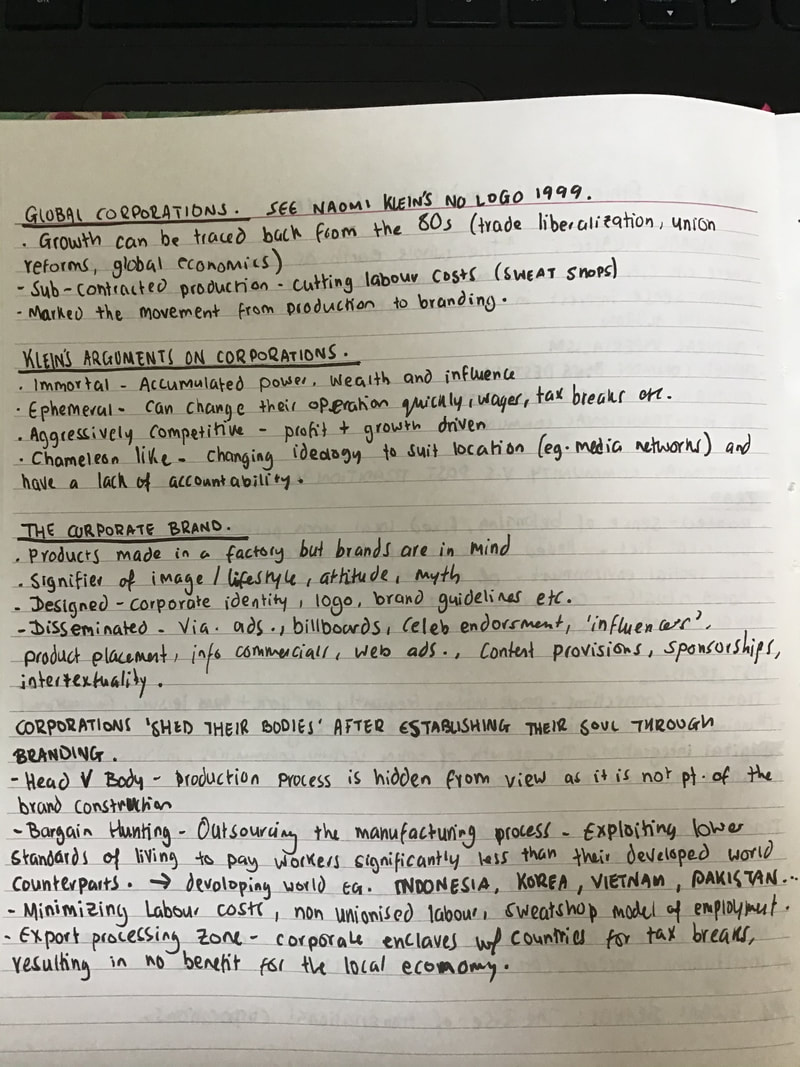 GLOBAL CORPORATIONS. SEE NAOMI KLEIN'S NO LOGO 1999.
. Growth can be traced back from the 80s (trade liberalization, union
reforms, global economics)
- Sub-contracted production - cutting labour costs (SWEAT SHOPS)
- Marked the movement from production to branding.
KLEIN'S ARGUMENTS ON CORPORATIONS.
. Immortal - Accumulated power, wealth and influence
. Ephemeral - can change their operation quickly, wages, tax breaks etc.
. Aggressively competitive - profit + growth driven
. Chameleon like - changing ideology to suit location (eg. media networks) and
have a lack of accountability.
THE CORPORATE BRAND.
. Products made in a factory but brands are in mind
. Signifier of image / lifestyle, attitude, myth
- Designed - corporate identity, logo, brand guidelines etc.
- Disseminated - Via. ads., billboards, celeb endorsment, 'influencers',
product placement, info commercials, web ads., content provisions, sponsorships,
intertextuality.
CORPORATIONS 'SHED THEIR BODIES' AFTER ESTABLISHING THEIR SOUL THROUGH
BRANDING.
- Head V Body - production process is hidden from view as it is not pt. of the
brand construction
- Bargain Hunting - Outsourcing the manufacturing process - Exploiting lower
standards of living to pay workers significantly less than their developed world
counterparts. → devoloping world eg. INDONESIA, KOREA, VIETNAM, PAKISTAN...
- Minimizing Labour costs, non unionised labour, sweatshop model of employment.
- Export processing zone - corporate enclaves w/ countries for tax breaks,
resulting in no benefit for the local economy.